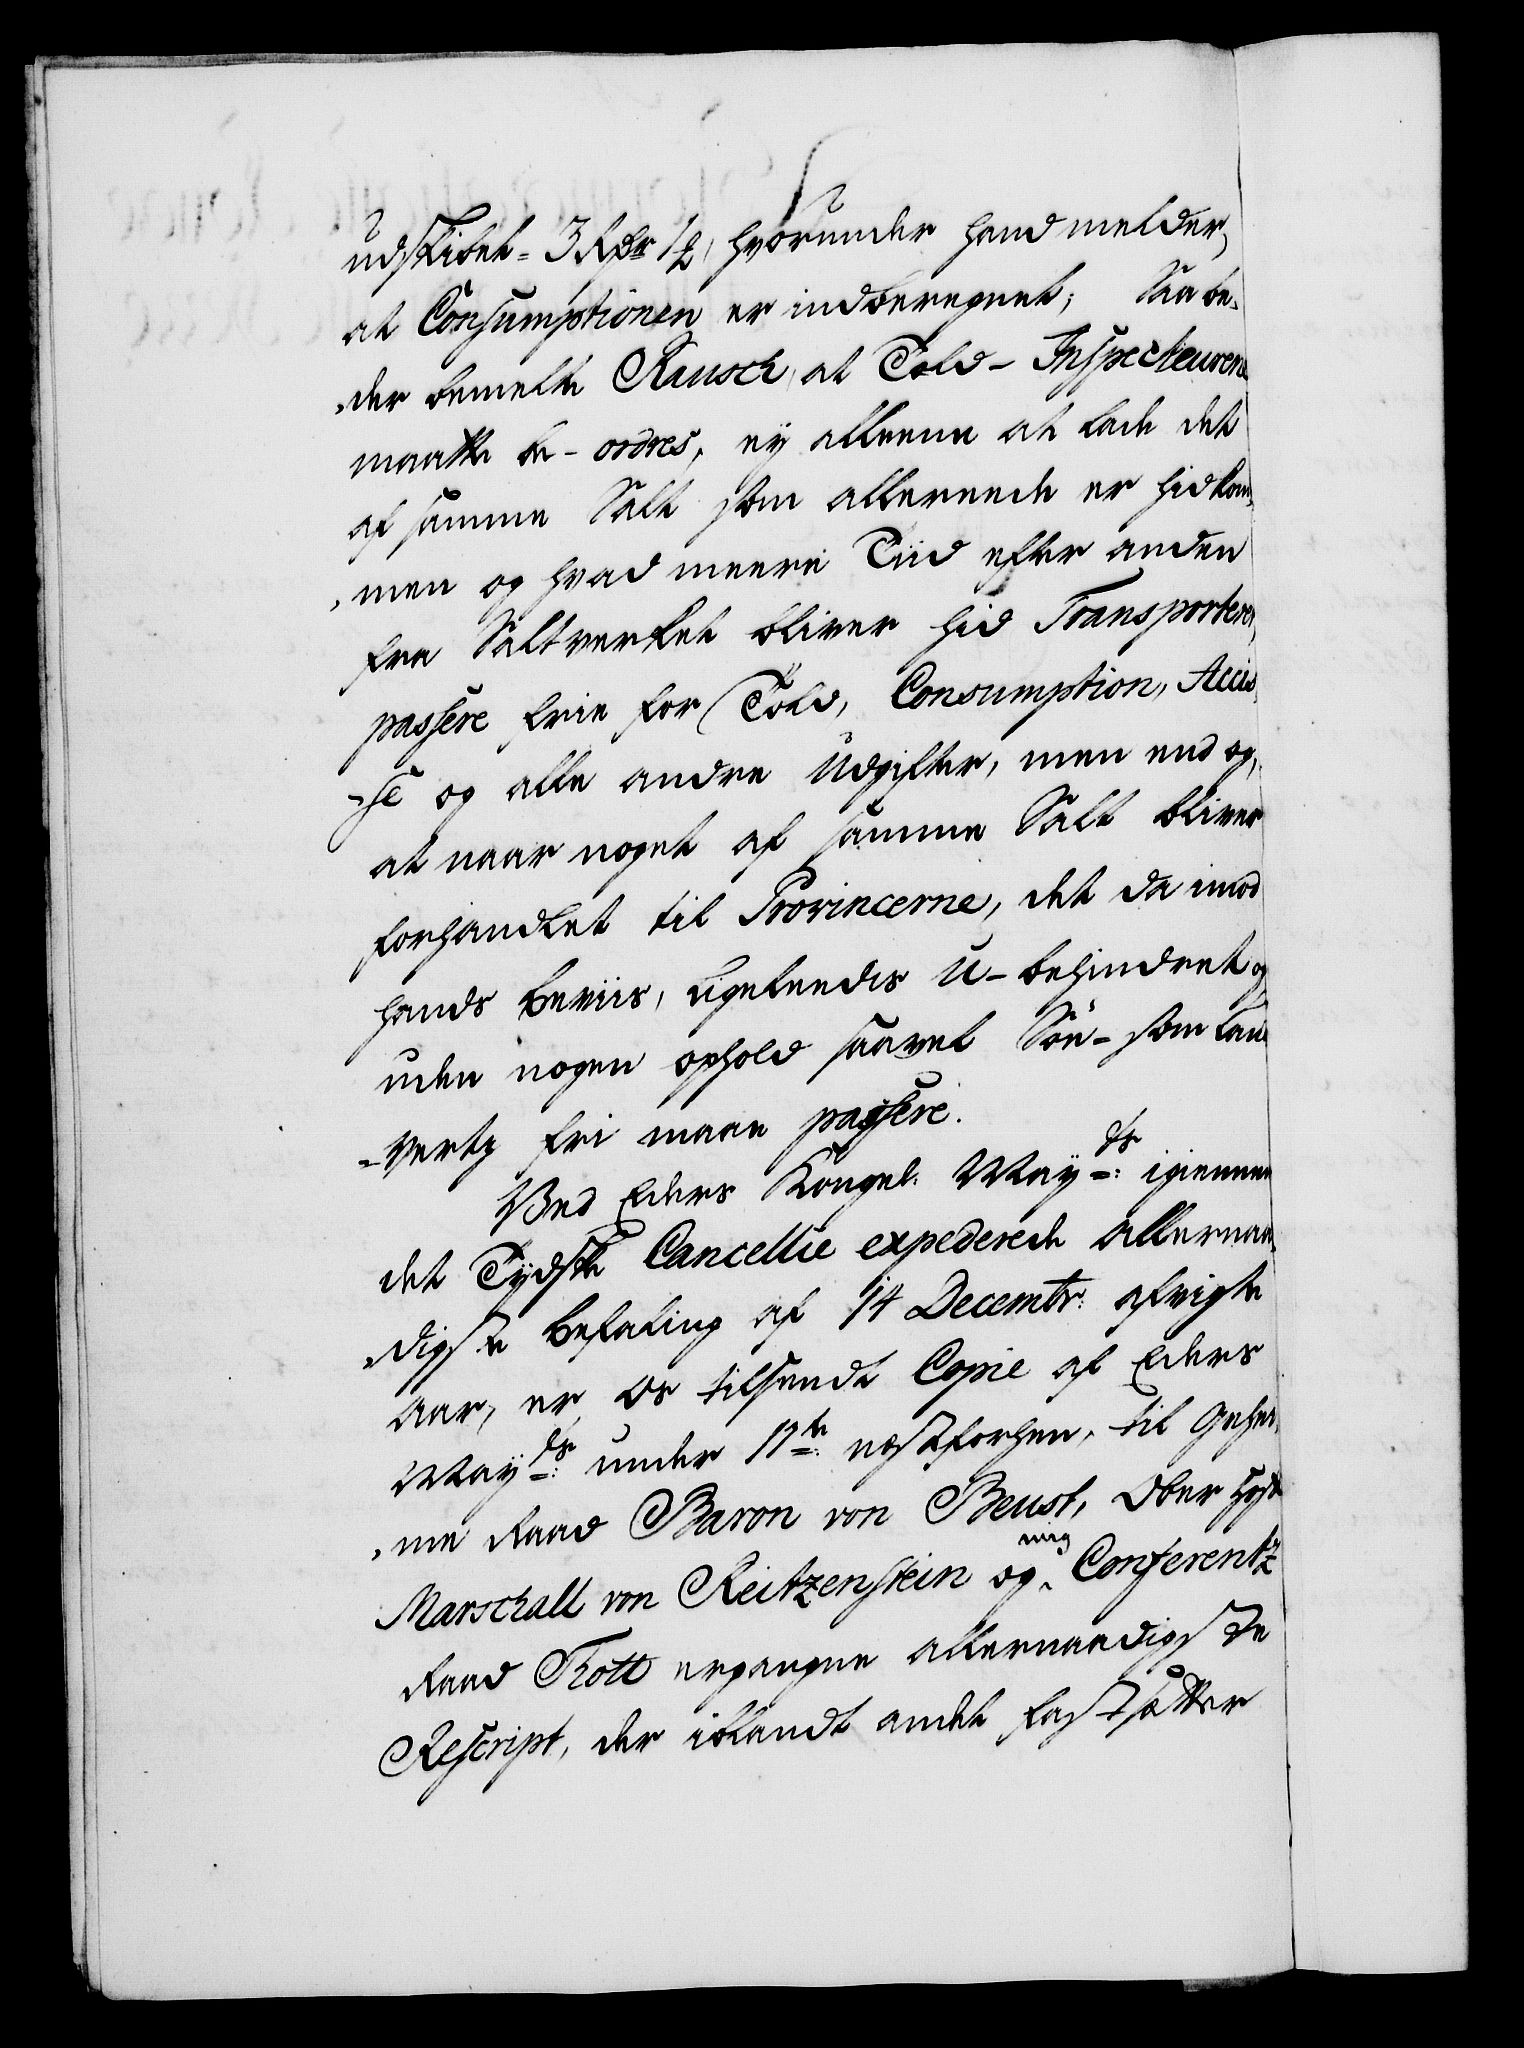 udskibet = 3 Rdr 1/2, hvorunder hand melder,
at Consumptionen er indberegnet; Saa be„
„der bemelte Rausch, at Told- Inspecteuren
maatte be- ordres, ej alleene at lade det
af samme Salt som allereede er hidkom„
„men og hvad meere Tiid efter anden
fra Saltverket bliver hid Transporteret,
passere frie for Told, Consumption, Accis„
-se og alle andre Udgifter, men end og,
at naar noget af samme Salt bliver
forhandlet til Provincerne, det da imod
hands beviis, ligeleedes U- behindret og
uden nogen ophold saavel Söe- som land
-verts fri maae passere.
Ved Eders Kongel: May=ds: igiennem
det Tydske Cancellie expederede allernaa„
„digste befaling af 14 Decembr: afvigte
Aar, er os tilsendt Copie af Eders
May=ds: under 11te: næstforhen, til Gehei„
„me Raad Baron von Beust, Ober Hof
Marschall von Reitzenstein og mig Conferentz
Raad Thott ergangne allernaadigste
Rescript, der iblandt andet fastsætter